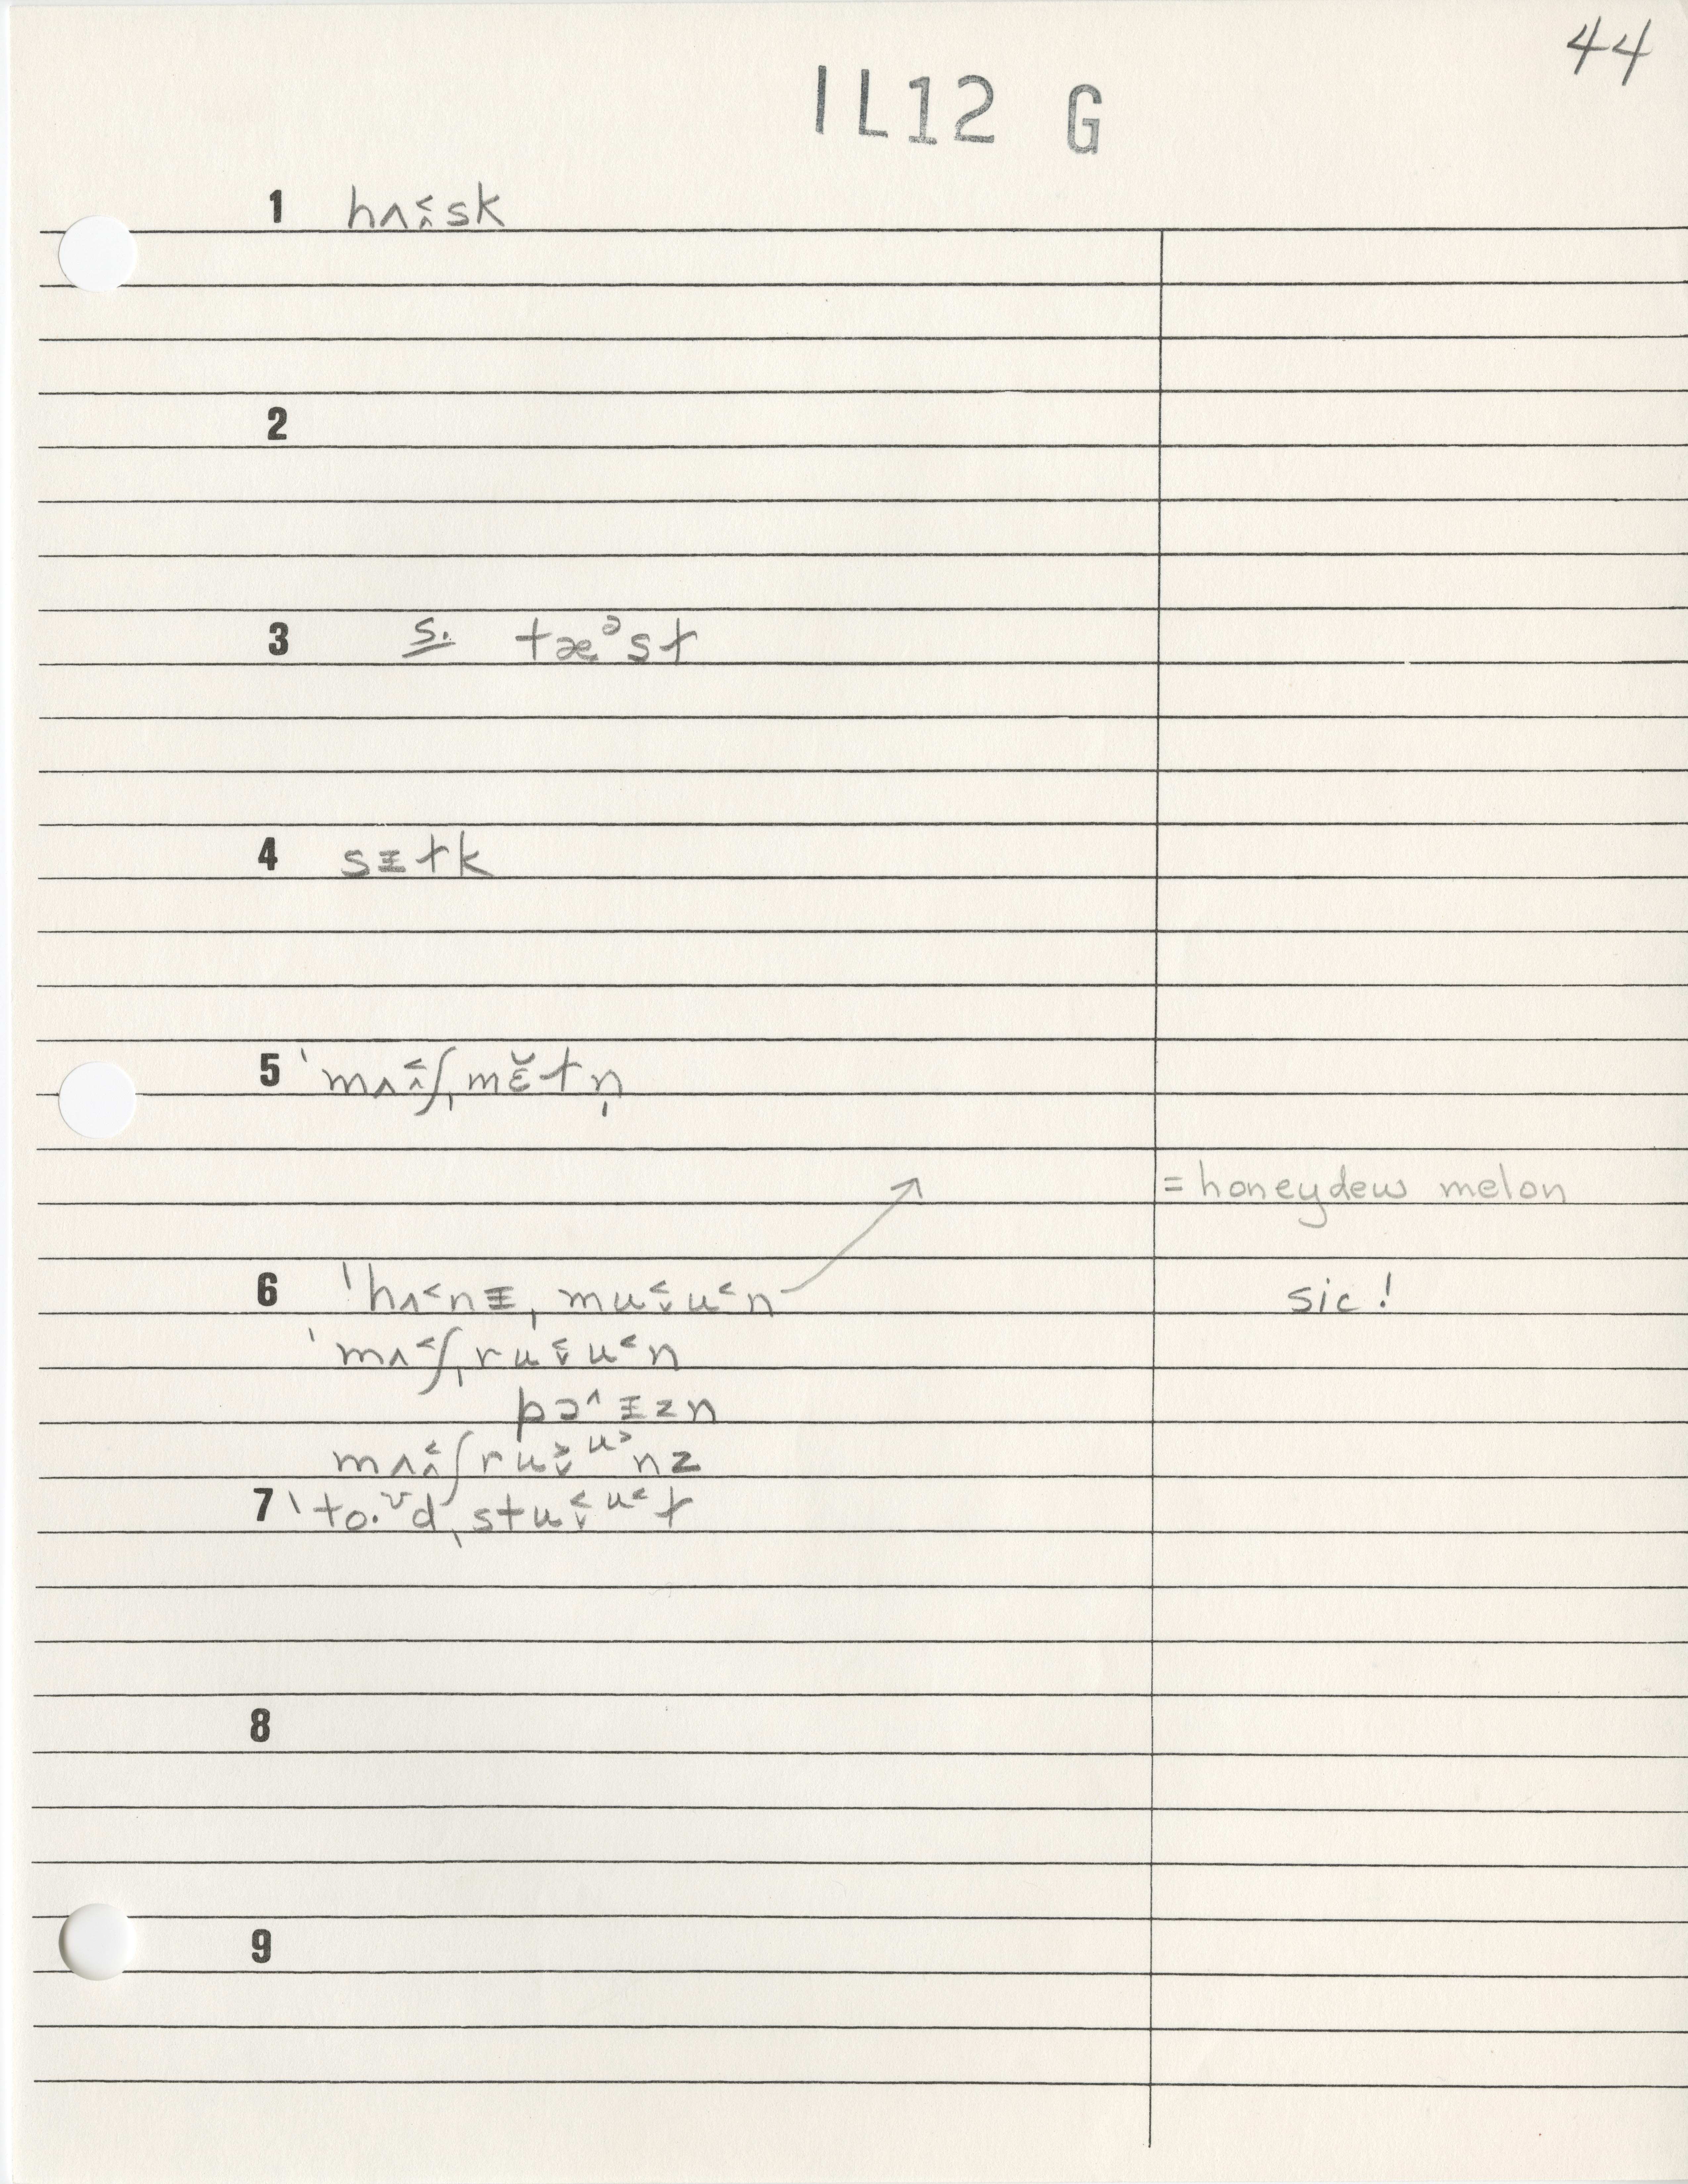 44
IL12 G
1 hʌ˂̭sk
2
3 s. tæᵊst
4 sɪtk
5 ˈmʌ˂̭ʃˌmɛ̆tn̩
= honeydew melon
6 ˈhʌ˂nɨˌmʉ˂̬ʉ˂n sic!
ˈmʌ˂ʃˌrʉ˂̬ʉ˂n
pɔ˄ɪzn
mʌ˂̭ʃrʉ˃̬ᶶ˃nz
7 ˈto·ᵛdˌstʉ˂̬ᶶ˂t
8
9